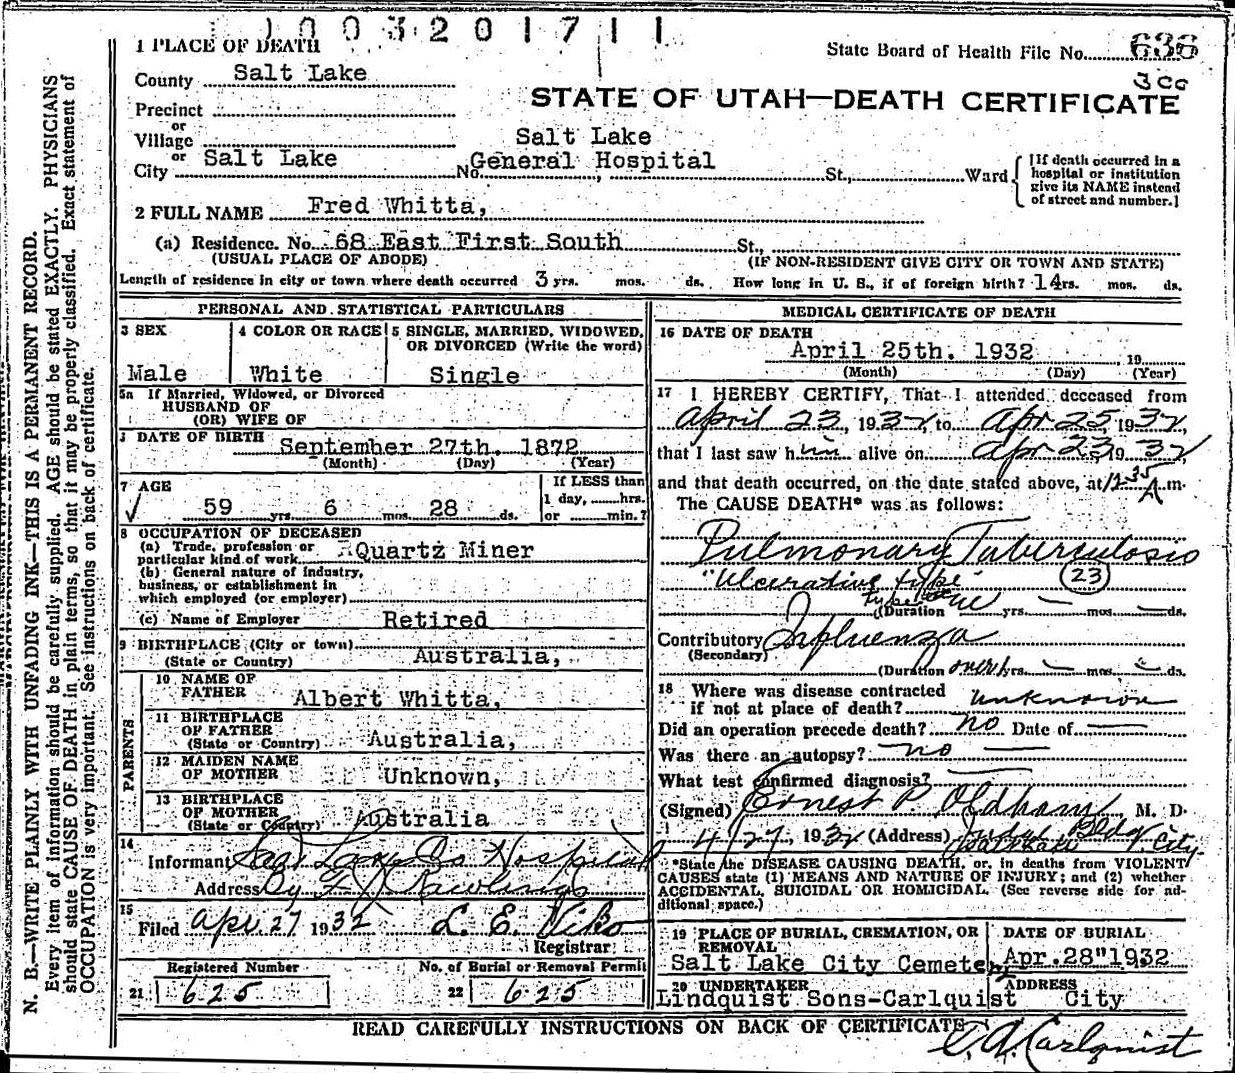 1003201711
1 PLACE OF DEATH
State Board of Health File No. 636
County Salt Lake
STATE OF UTAH—DEATH CERTIFICATE
Precinct
or
Village
Salt Lake
or
City Salt Lake No. General Hospital St., Ward
[If death occurred in a
hospital or institution
give its NAME instead
of street and number.]
2 FULL NAME Fred Whitta,
(a) Residence. No. 68 East First South St.,
(USUAL PLACE OF ABODE) (IF NON-RESIDENT GIVE CITY OR TOWN AND STATE)
Length of residence in city or town where death occurred 3 yrs. mos. ds. How long in U. S., if of foreign birth? 14rs. mos. ds.
PERSONAL AND STATISTICAL PARTICULARS
3 SEX 4 COLOR OR RACE 5 SINGLE, MARRIED, WIDOWED,
OR DIVORCED (Write the word)
Male White Single
5a If Married, Widowed, or Divorced
HUSBAND OF
(OR) WIFE OF
DATE OF BIRTH September 27th. 1872
(Month) (Day) (Year)
7 AGE
If LESS than
1 day, hrs.
or min.?
59 yrs. 6 mos. 28 ds.
8 OCCUPATION OF DECEASED
(a) Trade, profession or
particular kind of work Quartz Miner
(b) General nature of industry,
business, or establishment in
which employed (or employer)
(c) Name of Employer Retired
9 BIRTHPLACE (City or town)
(State or Country) Australia,
PARENTS
10 NAME OF
FATHER Albert Whitta,
11 BIRTHPLACE
OF FATHER
(State or Country) Australia,
12 MAIDEN NAME
OF MOTHER Unknown,
13 BIRTHPLACE
OF MOTHER
(State or Country) Australia
14
Informant Salt Lake Co Hospital
Address By F. J. Rawlings
15
Filed Apr. 27 1932 L. E. Viko
Registrar
Registered Number No. of Burial or Removal Permit
21 625 22 625
MEDICAL CERTIFICATE OF DEATH
16 DATE OF DEATH
April 25th. 1932 19
(Month) (Day) (Year)
17 I HEREBY CERTIFY, That I attended deceased from
April 23, 1932, to Apr 25 1932,
that I last saw him alive on Apr 23, 1932,
and that death occurred, on the date stated above, at 12 35 A.m.
The CAUSE DEATH* was as follows:
Pulmonary Tuberculosis
"Ulcerative type" (23)
(Duration yrs. — mos. — ds.
Contributory Influenza
(Secondary)
(Duration yrs. — mos. — ds.
18 Where was disease contracted
if not at place of death? unknown
Did an operation precede death? no Date of —
Was there an autopsy? no —
What test confirmed diagnosis? —
(Signed) Ernest P. Oldham, M. D.
4/27, 1932 (Address) Judge Bldg. City
*State the DISEASE CAUSING DEATH, or, in deaths from VIOLENT
CAUSES state (1) MEANS AND NATURE OF INJURY; and (2) whether
ACCIDENTAL, SUICIDAL OR HOMICIDAL. (See reverse side for ad-
ditional space.)
19 PLACE OF BURIAL, CREMATION, OR
REMOVAL
Salt Lake City Cemetery
DATE OF BURIAL
Apr. 28" 1932
20 UNDERTAKER
Lindquist Sons-Carlquist
ADDRESS
City
READ CAREFULLY INSTRUCTIONS ON BACK OF CERTIFICATE
C. A. Carlquist
N. B.—WRITE PLAINLY WITH UNFADING INK—THIS IS A PERMANENT RECORD.
Every item of information should be carefully supplied. AGE should be stated EXACTLY. PHYSICIANS
should state CAUSE OF DEATH in plain terms, so that it may be properly classified. Exact statement of
OCCUPATION is very important. See instructions on back of certificate.